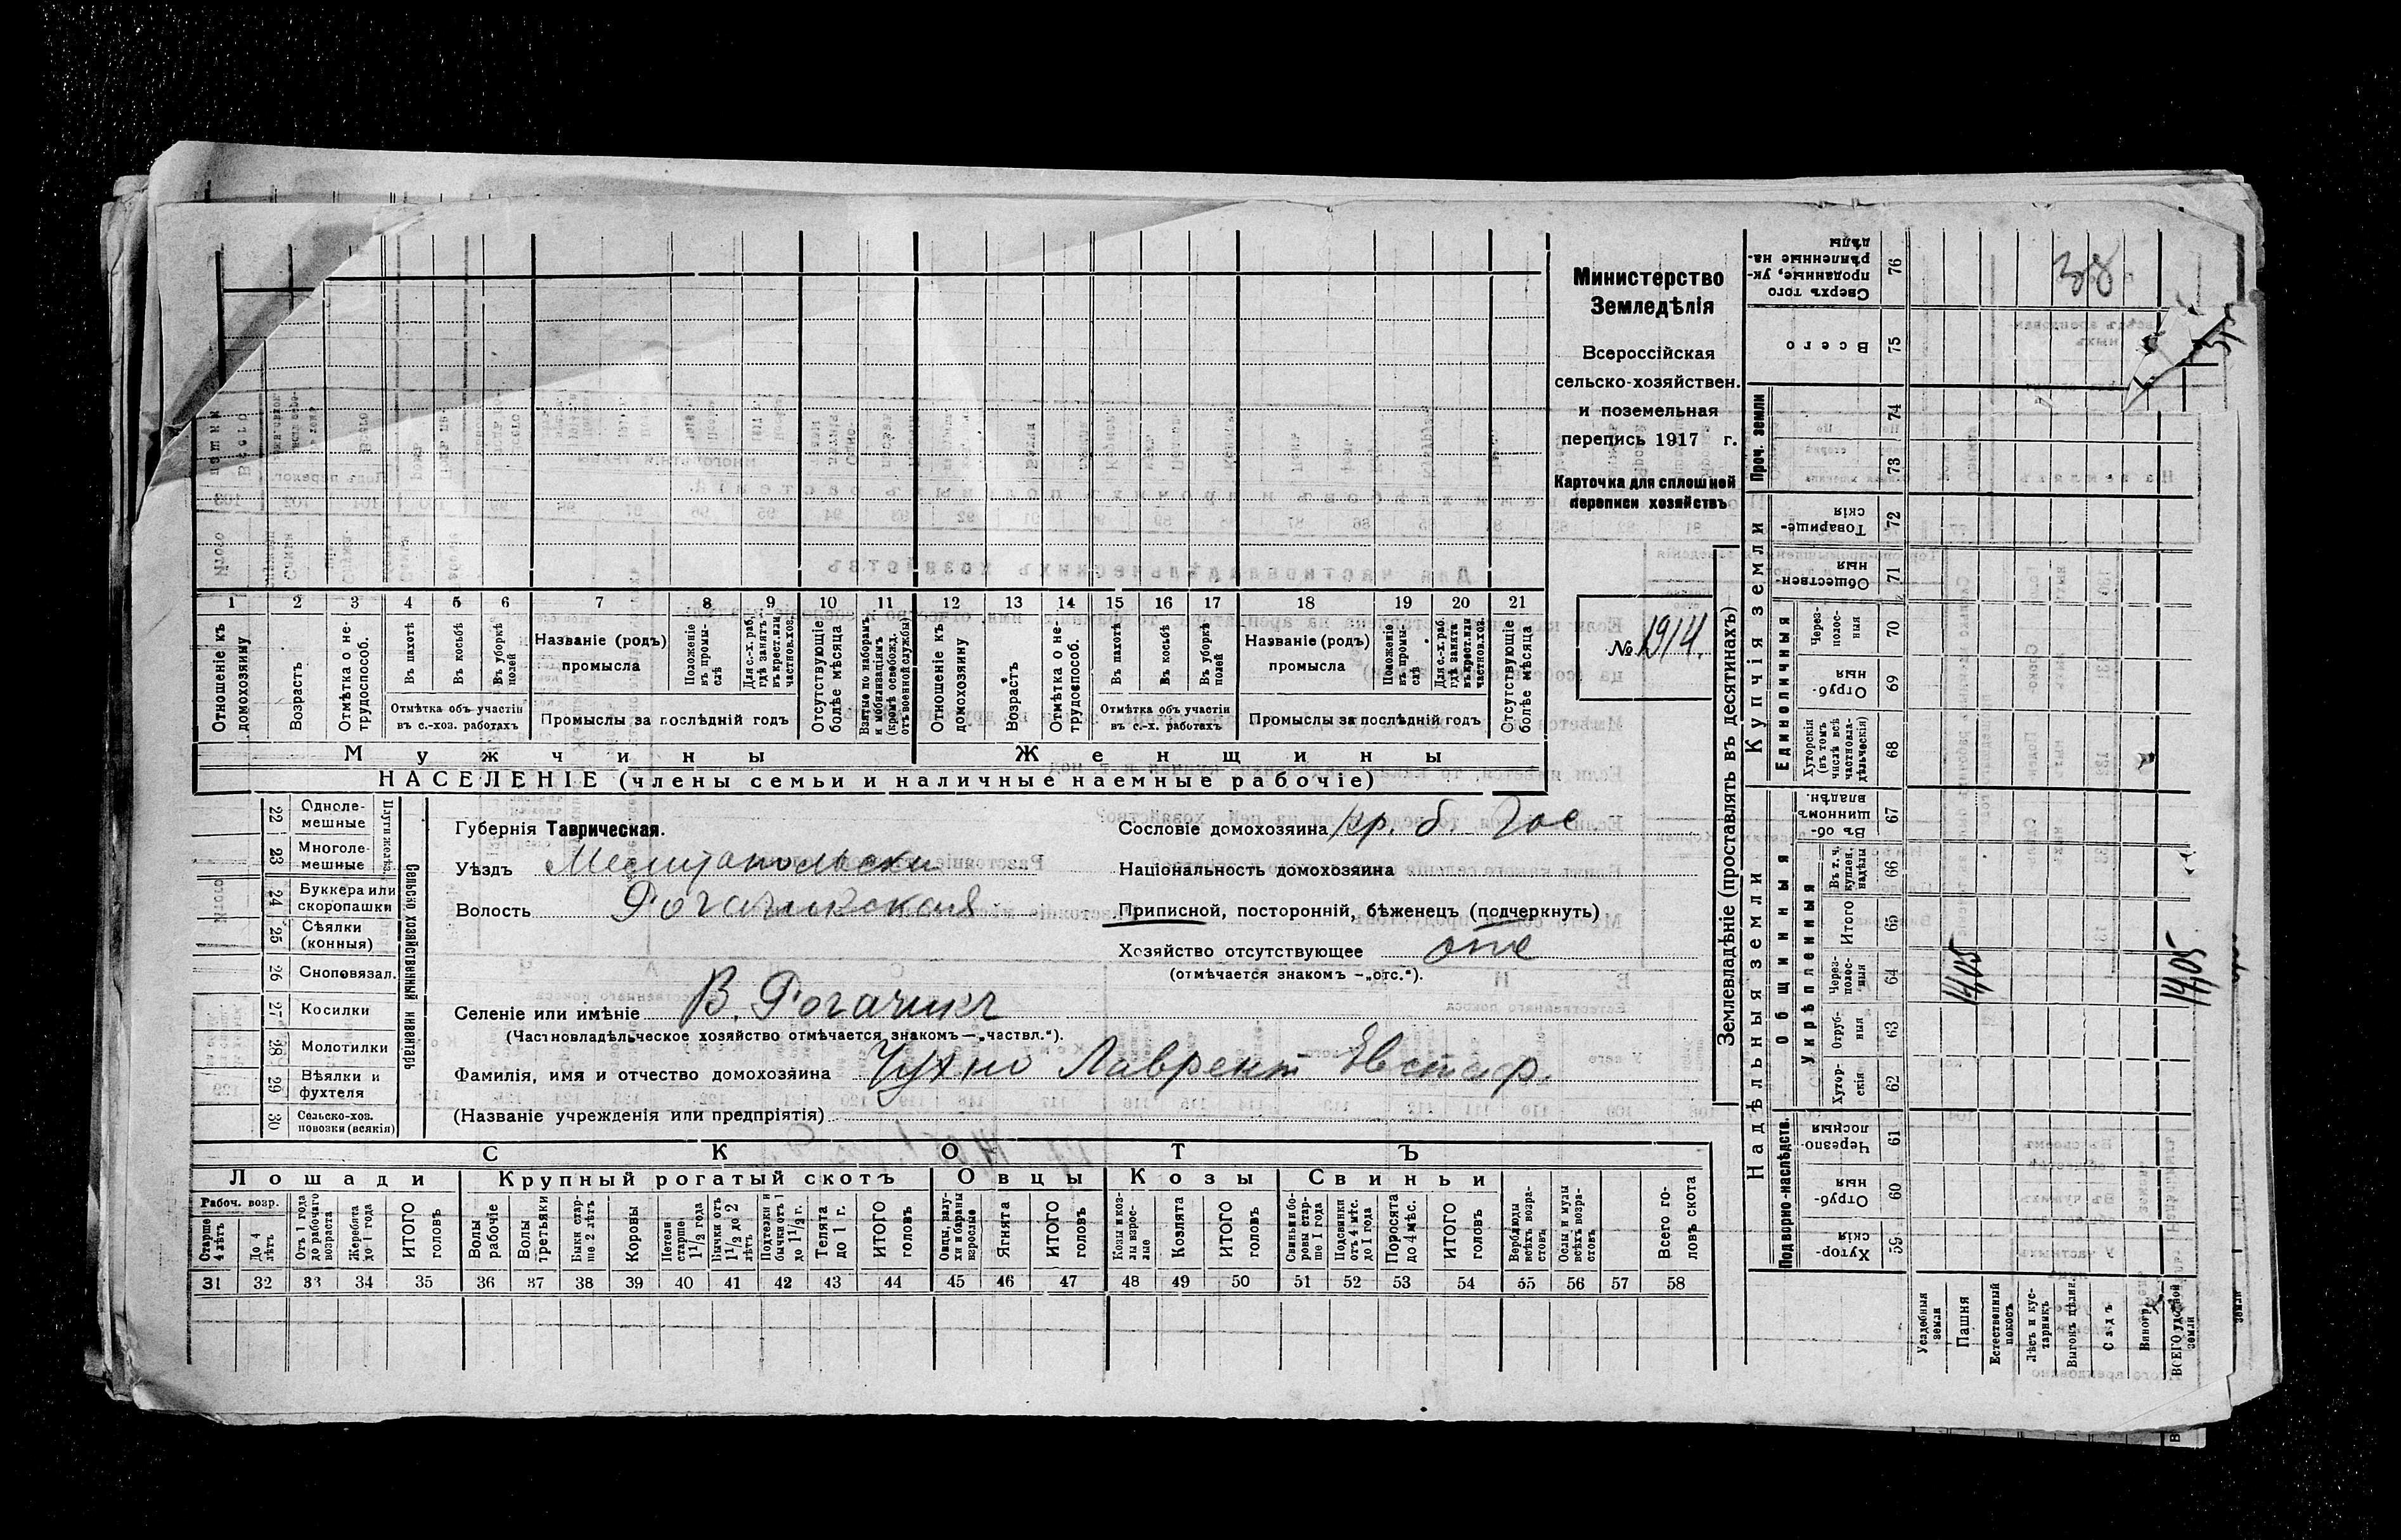 Министерство
Земледѣлія
Всероссійская
сельско-хозяйствен.
и поземельная
перепись 1917 г.
Карточка для сплошной
переписи хозяйствъ
№ 1914.
1 2 3 4 5 6 7 8 9 10 11 12 13 14 15 16 17 18 19 20 21
Отношеніе къ домохозяину
Возрастъ
Отмѣтка о нетрудоспособ.
Въ пахотѣ
Въ косьбѣ
Въ уборкѣ полей
Отмѣтка объ участіи
въ с.-хоз. работахъ
Названіе (родъ)
промысла
Положеніе въ промыслѣ
Для с.-х. раб. гдѣ занятъ: въ крест. или частнов. хоз.
Промыслы за послѣдній годъ
Отсутствующіе болѣе мѣсяца
Взятые по наборамъ и мобилизаціямъ (кромѣ освобожд. отъ военной службы)
Отношеніе къ домохозяину
Возрастъ
Отмѣтка о нетрудоспособ.
Въ пахотѣ
Въ косьбѣ
Въ уборкѣ полей
Отмѣтка объ участіи
въ с.-х. работахъ
Названіе (родъ)
промысла
Положеніе въ промыслѣ
Для с.-х. раб. гдѣ занята въ крест. или частнов. хоз.
Промыслы за послѣдній годъ
Отсутствующіе болѣе мѣсяца
Мужчины Женщины
НАСЕЛЕНІЕ (члены семьи и наличные наемные рабочіе)
Сельско хозяйственный инвентарь
Плуги желѣз.
22 Одноле-
мешные
23 Многоле-
мешные
24 Буккера или
скоропашки
25 Сѣялки
(конныя)
26 Сноповязал.
27 Косилки
28 Молотилки
29 Вѣялки и
фухтеля
30 Сельско-хоз.
повозки (всякія)
Губернія Таврическая.
Уѣздъ Мелитопольски
Волость Рогачикская
Селеніе или имѣніе В. Рогачикъ
(Частновладѣльческое хозяйство отмѣчается знакомъ — „частвл.“).
Фамилія, имя и отчество домохозяина Чухно Лаврент Евстаф.
(Названіе учрежденія или предпріятія)
Сословіе домохозяина кр. б. Гос
Національность домохозяина
Приписной, посторонній, бѣженецъ (подчеркнуть)
Хозяйство отсутствующее отс
(отмѣчается знакомъ — „отс.“).
СКОТЪ
Лошади Крупный рогатый скотъ Овцы Козы Свиньи
Рабоч. возр.
Старше 4 лѣтъ
До 4 лѣтъ
Отъ 1 года до рабочаго возраста
Жеребята до 1 года
ИТОГО головъ
Волы рабочіе
Волы третьяки
Быки старше 2 лѣтъ
Коровы
Нетели старше 1 1/2 года
Бычки отъ 1 1/2 до 2 лѣтъ
Подтелки и бычки отъ 1 до 1 1/2 г.
Телята до 1 г.
ИТОГО головъ
Овцы, валухи и бараны взрослые
Ягнята
ИТОГО головъ
Козы и козлы взрослые
Козлята
ИТОГО головъ
Свиньи и боровы старше 1 года
Подсвинки отъ 4 мѣс. до 1 года
Поросята до 4 мѣс.
ИТОГО головъ
Верблюды всѣхъ возрастовъ
Ослы и мулы всѣхъ возрастовъ
Всего головъ скота
31 32 33 34 35 36 37 38 39 40 41 42 43 44 45 46 47 48 49 50 51 52 53 54 55 56 57 58
Землевладѣніе (проставлять въ десятинахъ)
Надѣльныя земли Купчія земли Проч. земли
Подворно-наслѣдств.
Общинныя
Укрѣпленныя
Единоличныя
76 Сверхъ того проданные, укрѣпленные надѣлы
75 Всего
74
73
72 Товарищескія
71 Общественныя
70 Черезполосныя
69 Отрубныя
68 Хуторскія (въ томъ числѣ всѣ частновладѣльческія)
67 Въ общинномъ владѣн.
66 Въ т. ч. куплен. надѣлы
65 Итого
64 Черезполосныя
63 Отрубныя
62 Хуторскія
61 Черезполосныя
60 Отрубныя
59 Хуторскія
Усадебныя земли
Пашня
Естественный покосъ
Лѣсъ и кустарникъ
Выгонъ цѣлин.
Садъ
Виногр.
ВСЕГО удобной земли
38
14,05
14,05